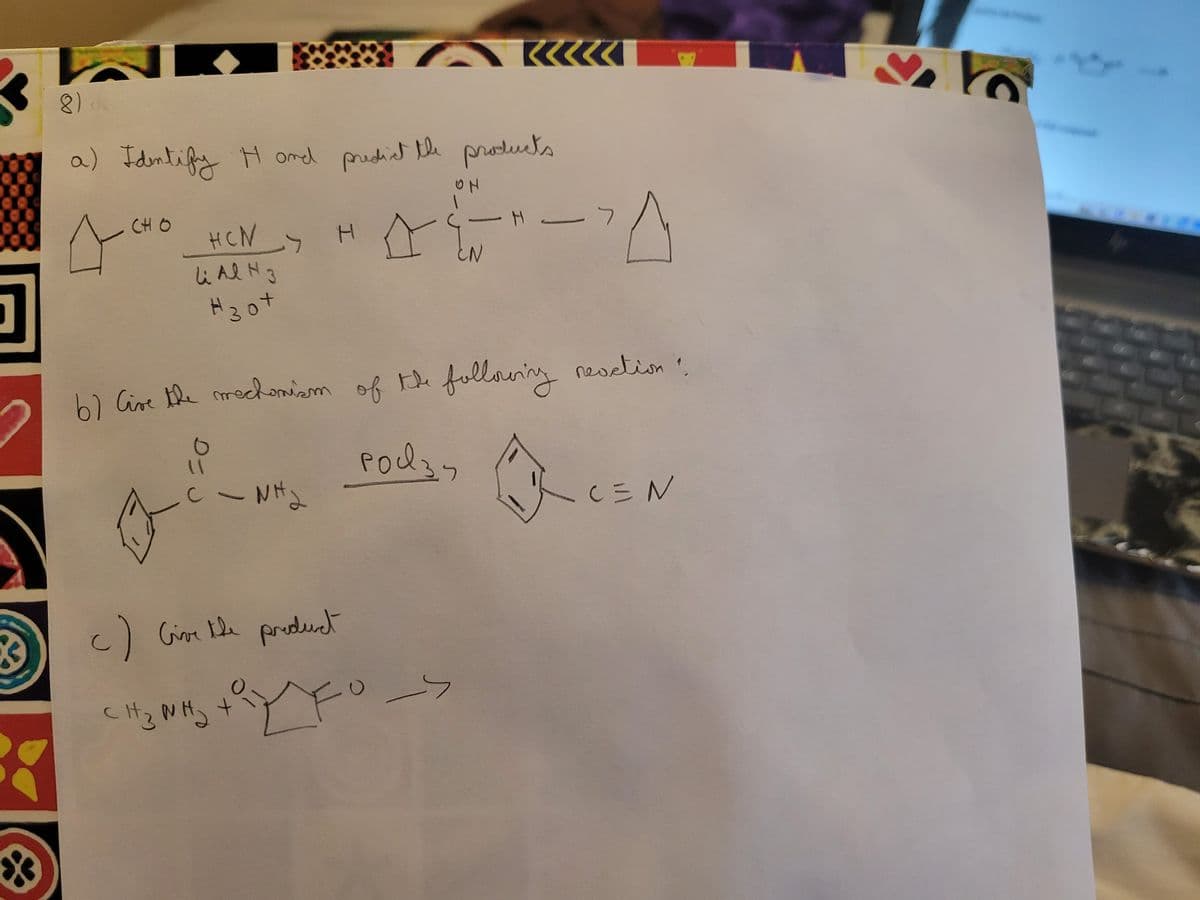 8)
a) Identify H and predict the products
OH
CHO HCN H C - H
LiAlH3 CN
H3O+
b) Give the mechanism of the following reaction:
O
C - NH2 POCl3 C≡N
c) Give the product
CH3NH2 + O O